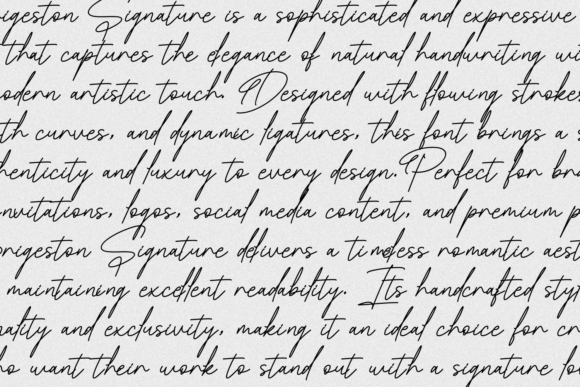 igeston Signature is a sophisticated and expressive
that captures the elegance of natural handwriting wi
odern artistic touch. Designed with flowing strokes
th curves, and dynamic ligatures, this font brings a s
henticity and luxury to every design. Perfect for bra
nvitations, logos, social media content, and premium p
rigeston Signature delivers a timeless romantic aest
maintaining excellent readability. Its handcrafted styl
nality and exclusivity, making it an ideal choice for cr
ho want their work to stand out with a signature loo